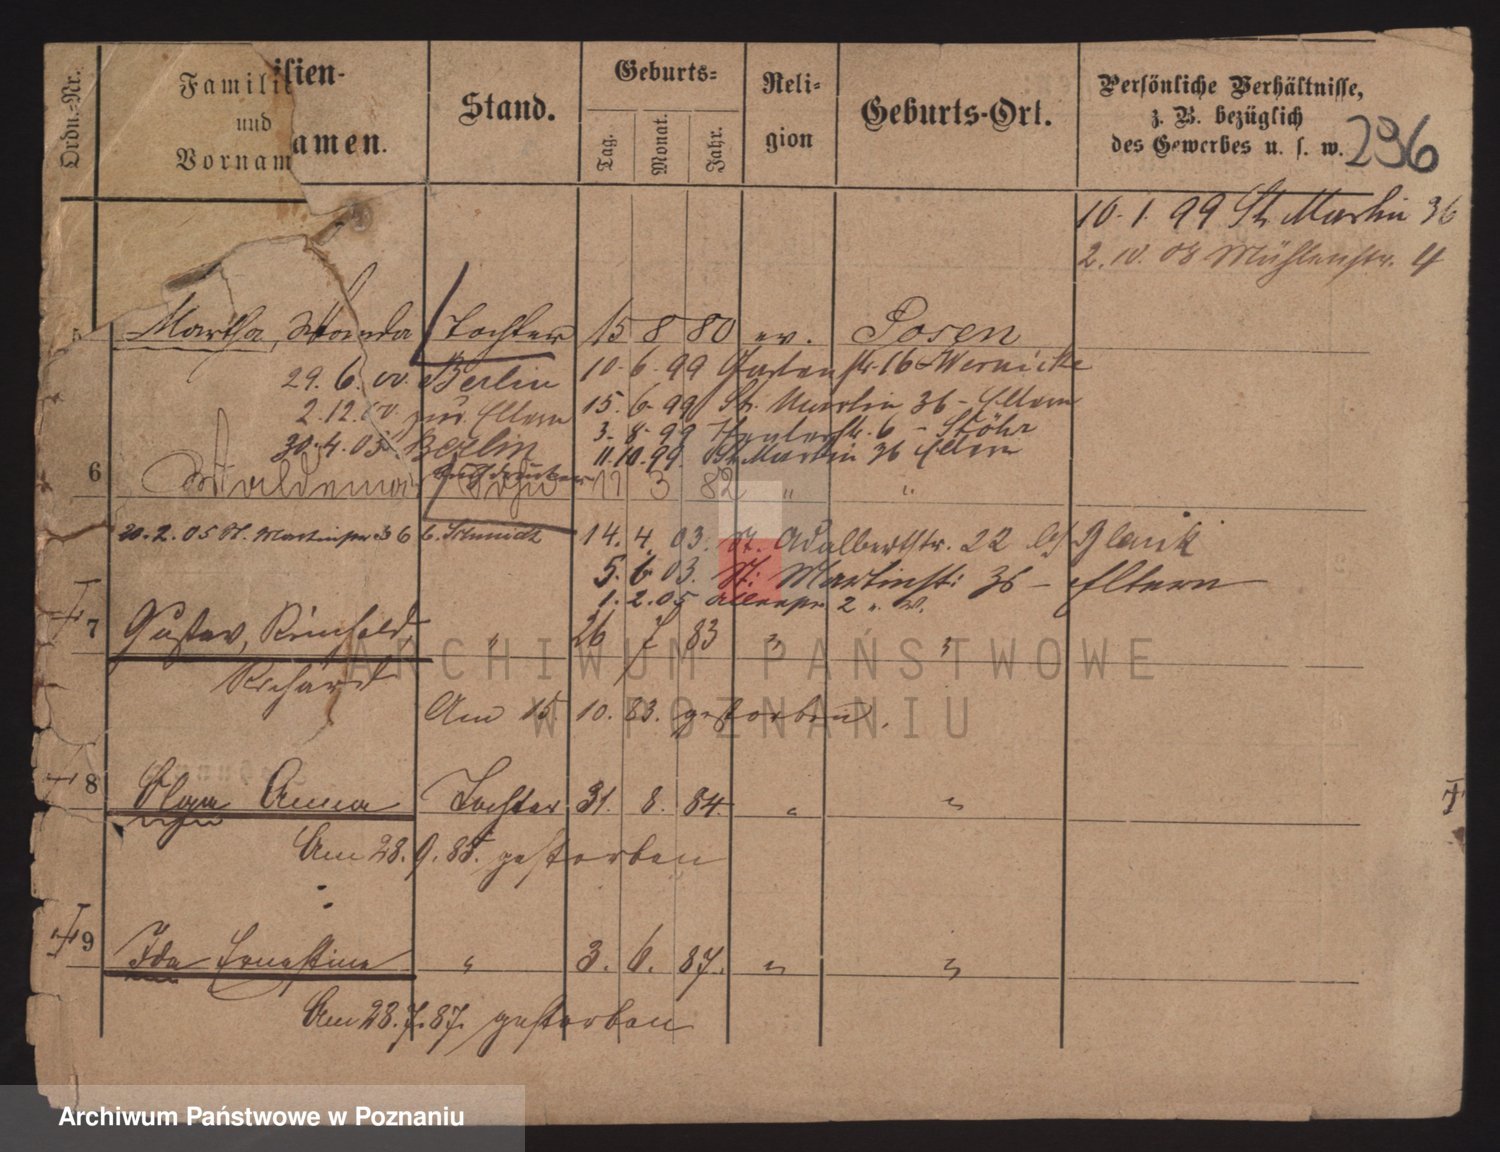 Ordn.-Nr.
Familien-
und
Vornamen.
Stand.
Geburts-
Tag. Monat. Jahr.
Reli-
gion
Geburts-Ort.
Persönliche Verhältnisse,
z. B. bezüglich
des Gewerbes u. s. w.
236
10. 1. 99 St. Martin 36
2. IV. 08 Mühlenstr. 4
5 Martha, Wanda Tochter 15 8 80 ev. Posen
10. 6. 99 Gartenstr. 16 - Wernicke
29. 6. 00. Berlin
15. 6. 99 St. Martin 36 - Eltern
2. 12. 00. zur. Eltern
3. 8. 99 6 - Stöhr
30. 4. 03 Berlin
11. 10. 99. St. Martin 36 Eltern
6 Waldemar Sohn 17 3 82 " "
20. 2. 05 St. Martinstr 36 b. Schmidt
14. 4. 03. St. Adalbertstr. 22 bei
5. 6. 03. St. Martinstr. 36 - Eltern
1. 2. 05 2
7 Gustav, Reinhold, " 26 7 83 " "
Richard
Am 15. 10. 83. gestorben.
8 Olga Anna Tochter 31. 8. 84. " "
Am 28. 9. 85. gestorben
9 Ida Ernestine " 3. 6. 87. " "
Am 28. 7. 87. gestorben
ARCHIWUM PAŃSTWOWE
W POZNANIU
Archiwum Państwowe w Poznaniu